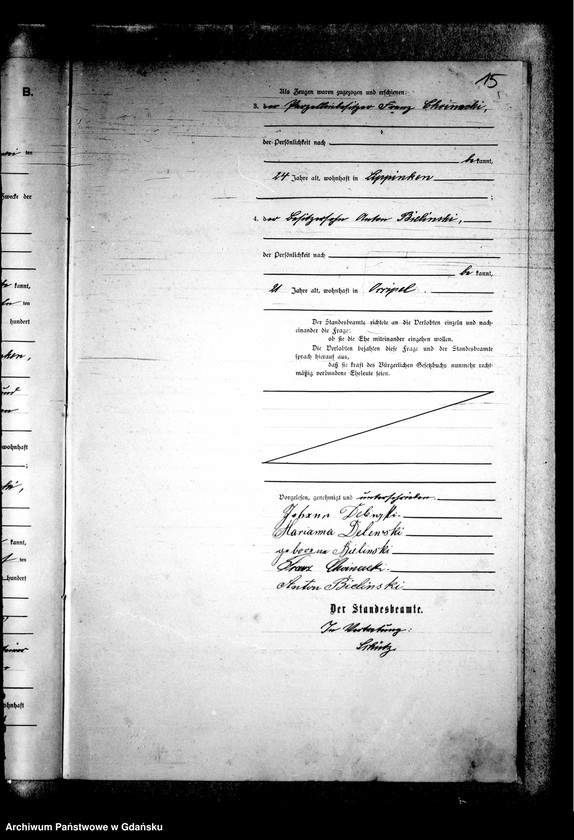 B.
15
Als Zeugen waren zugezogen und erschienen:
3. der Parzellenbesitzer Franz Choinacki,
der Persönlichkeit nach
be kannt,
24 Jahre alt, wohnhaft in Lippinken
;
4. der Besitzersohn Anton Bielinski,
der Persönlichkeit nach
be kannt,
21 Jahre alt, wohnhaft in
Der Standesbeamte richtete an die Verlobten einzeln und nach-
einander die Frage:
ob sie die Ehe miteinander eingehen wollen.
Die Verlobten bejahten diese Frage und der Standesbeamte
sprach hierauf aus,
daß sie kraft des Bürgerlichen Gesetzbuchs nunmehr recht-
mäßig verbundene Eheleute seien.
Vorgelesen, genehmigt und unterschrieben.
Johann
Marianna Delewski
geborene Bielinski
Franz Choinacki.
Anton Bielinski
Der Standesbeamte.
In Vertretung:
ten
Zwecke der
kannt,
ten
hundert
wohnhaft
;
kannt,
ten
hundert
wohnhaft
Archiwum Państwowe w Gdańsku